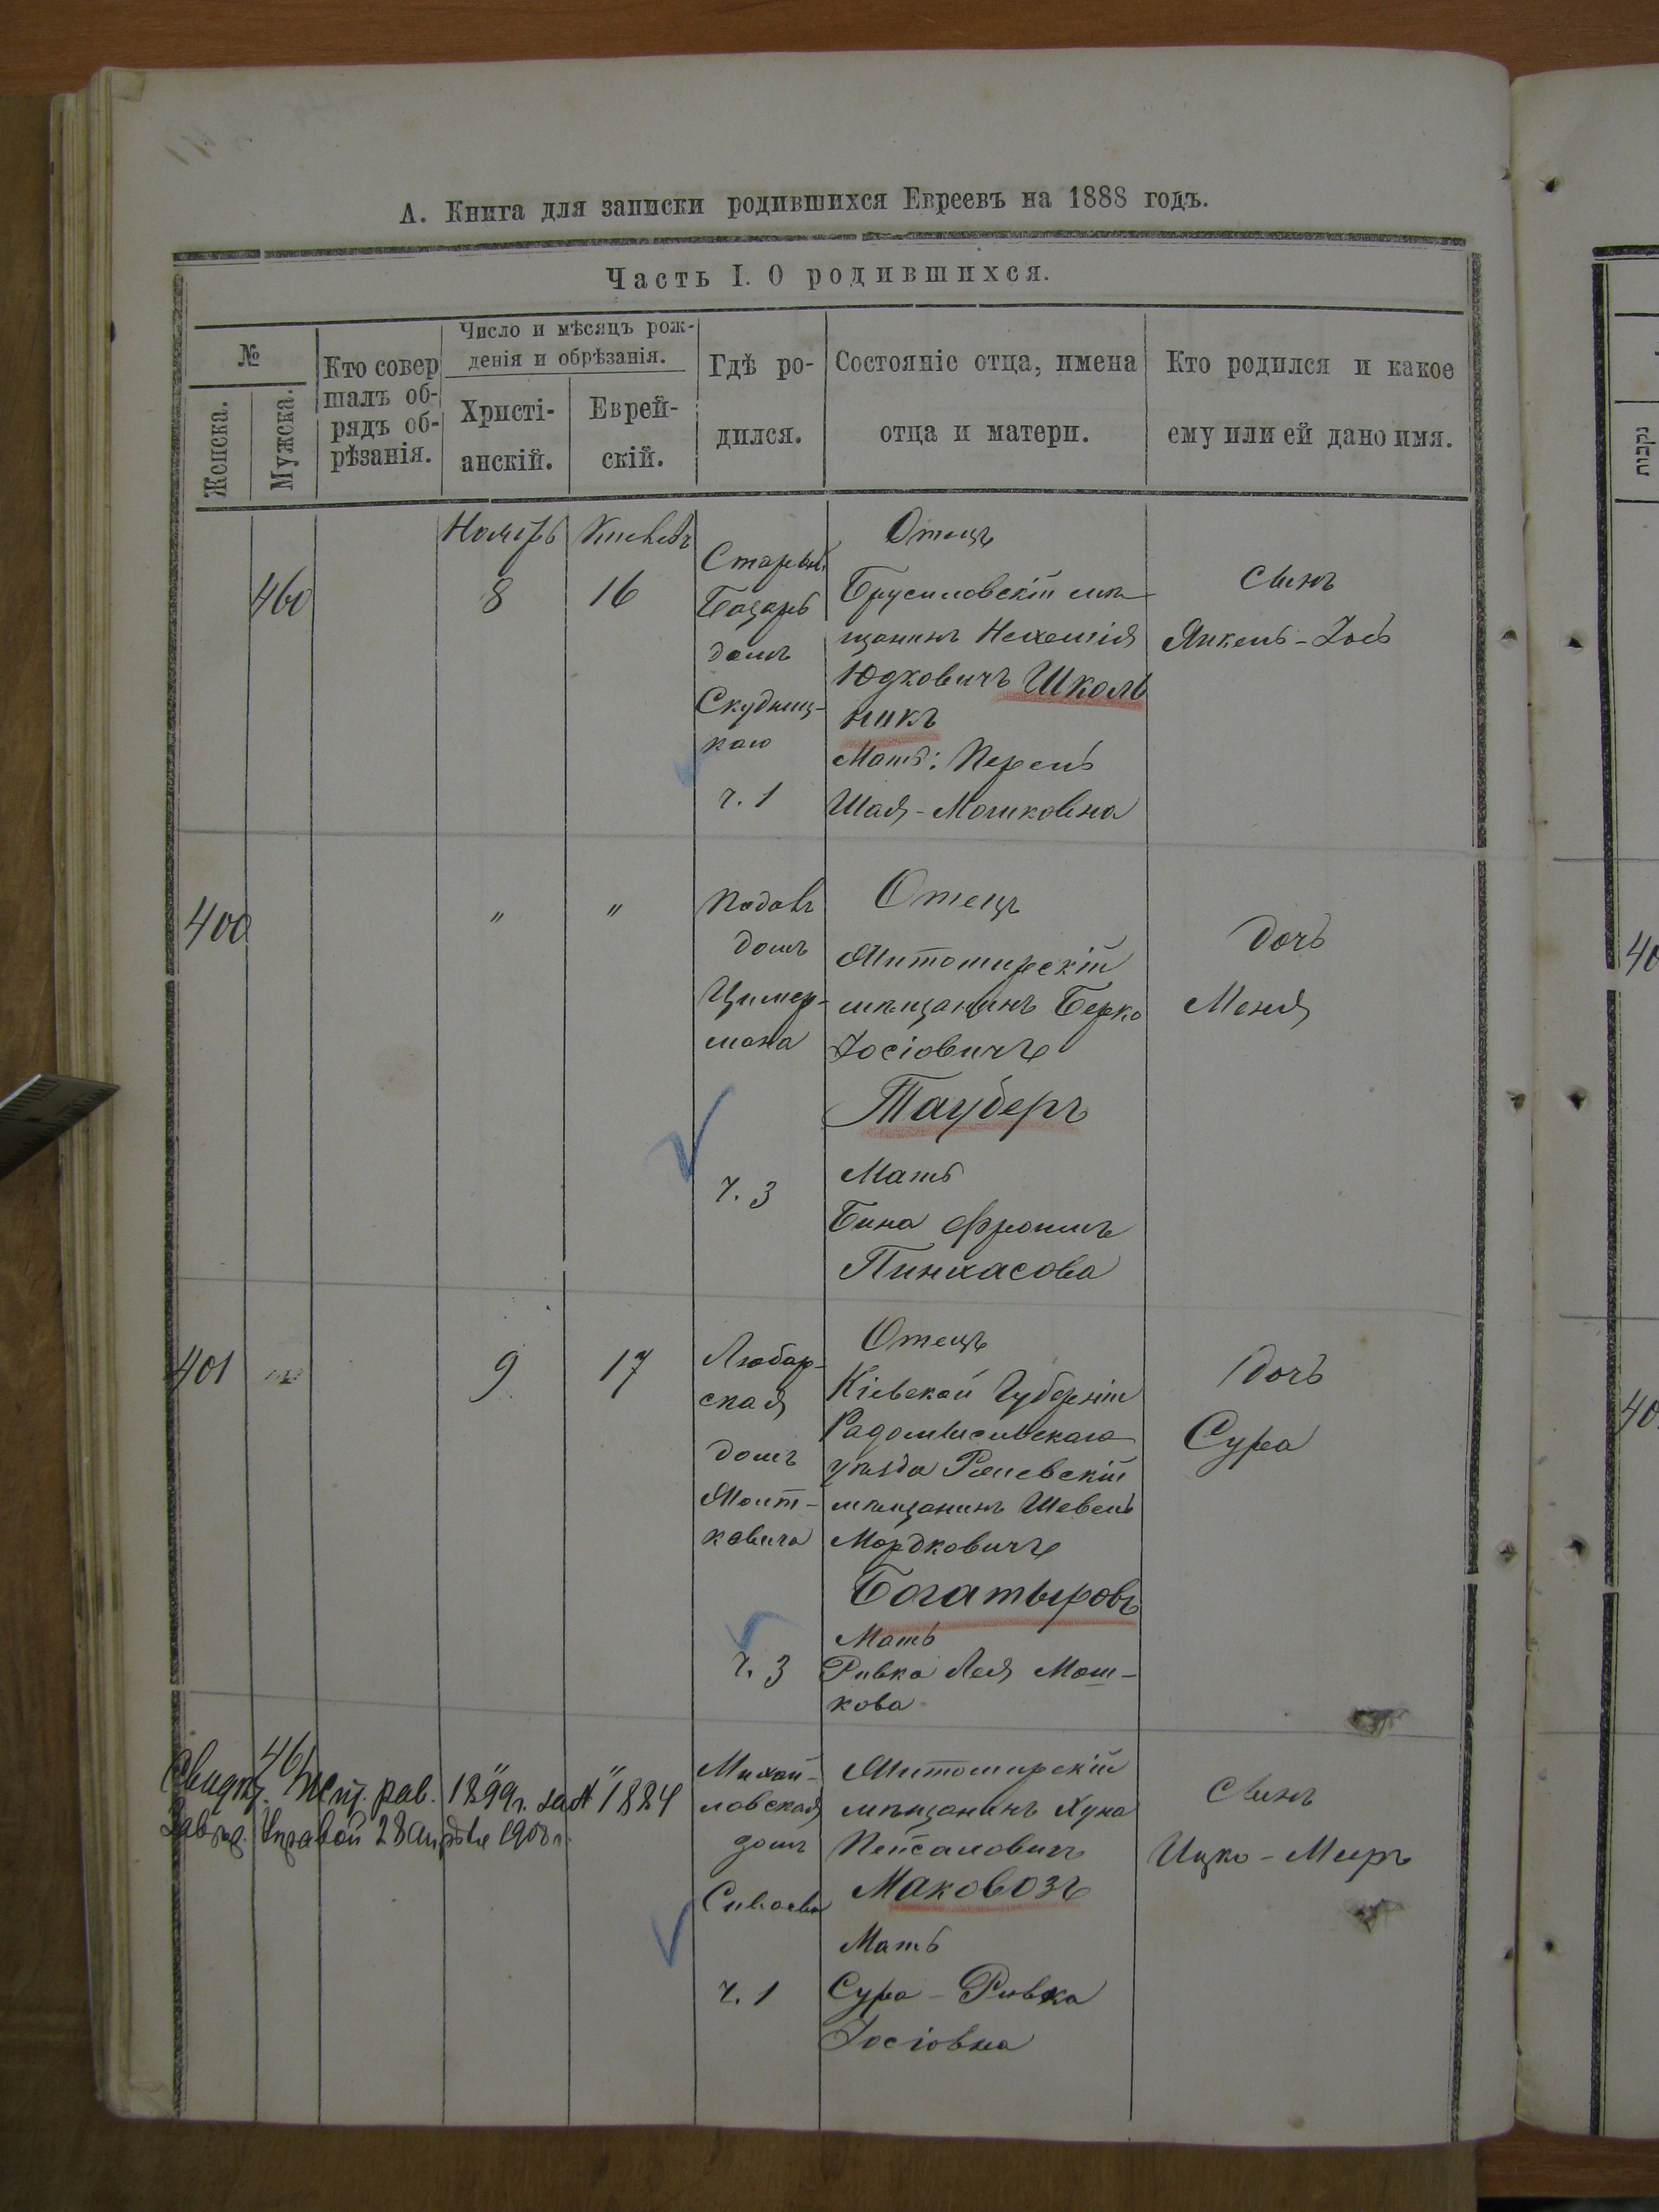 А. Книга для записки родившихся Евреевъ на 1888 годъ.
Часть I. О родившихся.
№
Женска.
Мужска.
Кто совер
шалъ об-
рядъ об-
рѣзанія.
Число и мѣсяцъ рож-
денія и обрѣзанія.
Христі-
анскій.
Еврей-
скій.
Гдѣ ро-
дился.
Состояніе отца, имена
отца и матери.
Кто родился и какое
ему или ей дано имя.
460
8
16
Старый
Базаръ
домъ
Скудниц-
каго
ч. 1
Отецъ
Брусиловскій мѣ-
щанинъ Нехемія
Юдковичъ Школь
никъ
Мать: Перель
Шая-Мошковна
Сынъ
Янкель-Іось
400
"
"
домъ
Цимер-
мана
ч. 3
Отецъ
Житомирскій
мѣщанинъ Берко
Іосіовичъ
Тауберъ
Мать
Бина Фроимъ
Пинхасова
дочь
Меня
401
9
17
Любар-
ская
домъ
ковича
ч. 3
Отецъ
Кіевской Губерніи
Радомысльскаго
уѣзда
мѣщанинъ Шевель
Мордковичъ
Богатыровъ
Мать
Ривка Лея Мош-
кова
дочь
Сура
461
"
"
рав. 1899г. за № 1884
1900г.
Михай-
ловская
домъ
ч. 1
Житомирскій
мѣщанинъ Хуна
Пейсаховичъ
Маковозъ
Мать
Сура-Ривка
Іосіовна
Сынъ
Ицко-Меер
נקבות
40
40